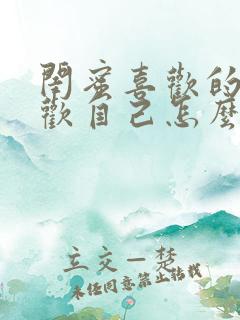 閨蜜喜歡的
歡自己怎麼
立交一楚
未经同意禁止转载